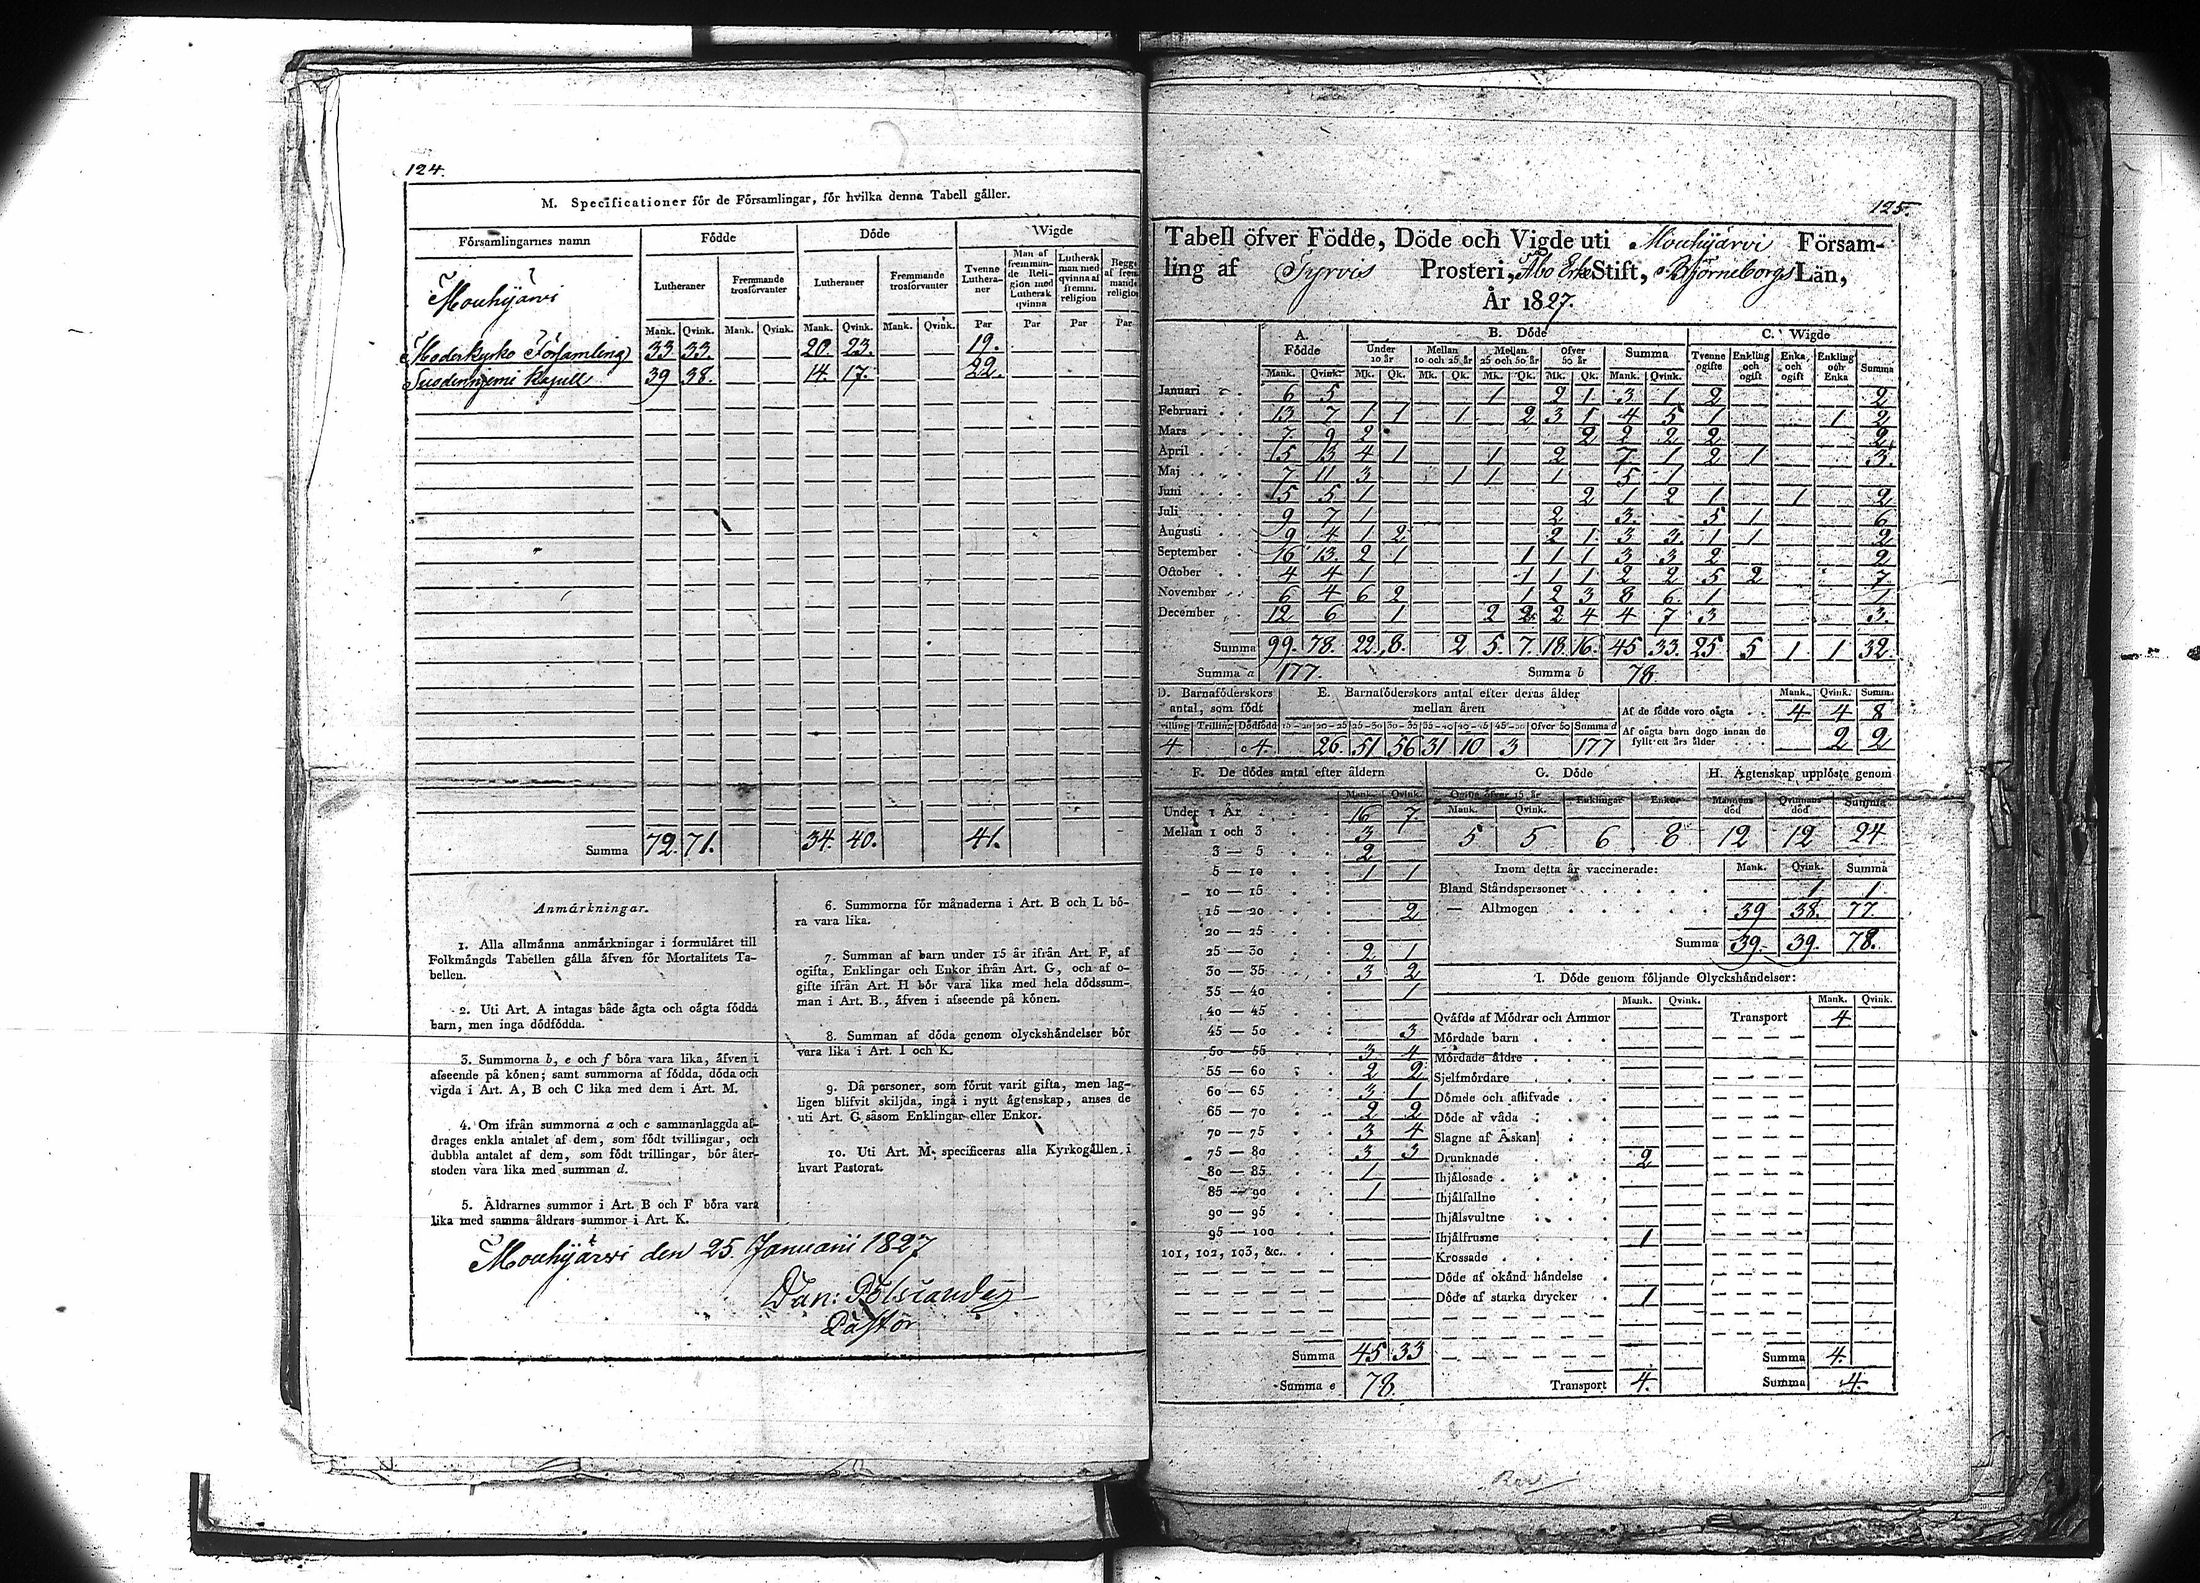 124.
M. Specificationer för de Församlingar, för hvilka denna Tabell gäller.
Församlingarnes namn Födde Döde Wigde
Lutheraner Fremmande trosförvanter Lutheraner Fremmande trosförvanter Tvenne Lutheraner Man af fremmunde Religion med Luthersk qvinna Luthersk man med qvinna af fremm. religion
Mouhijärvi
Mank. Qvink. Mank. Qvink. Mank. Qvink. Mank. Qvink. Par Par Par Par
Moderkyrko Församling 33 33. 20. 23. 19.
Suodenniemi Kapell 39 38. 14. 17. 22.
Summa 72. 71. 34. 40. 41.
Anmärkningar.
1. Alla allmänna anmärkningar i formuläret till
Folkmängds Tabellen gälla äfven för Mortalitets Ta-
bellen.
2. Uti Art. A intagas både ägta och oägta födda
barn, men inga dödfödda.
3. Summorna b, e och f böra vara lika, äfven i
afseende på könen; samt summorna af födda, döda och
vigda i Art. A, B och C lika med dem i Art. M.
4. Om ifrån summorna a och c sammanlaggda af-
drages enkla antalet af dem, som födt tvillingar, och
dubbla antalet af dem, som födt trillingar, bör åter-
stoden vara lika med summan d.
5. Äldrarnes summor i Art. B och F böra vara
lika med samma åldrars summor i Art. K.
6. Summorna för månaderna i Art. B och L bö-
ra vara lika.
7. Summan af barn under 15 år ifrån Art. F, af
ogifta, Enklingar och Enkor ifrån Art. G, och af o-
gifte ifrån Art. H bör vara lika med hela dödssum-
man i Art. B., äfven i afseende på könen.
8. Summan af döda genom olyckshändelser bör
vara lika i Art. I och K.
9. Då personer, som förut varit gifta, men lag-
ligen blifvit skiljda, ingå i nytt ägtenskap, anses de
uti Art. G såsom Enklingar eller Enkor.
10. Uti Art. M specificeras alla Kyrkogällen i
hvart Pastorat.
Mouhijärvi den 25. Januarii 1827
Dan: Polviander
Pastor
125.
Tabell öfver Födde, Döde och Vigde uti Mouhijärvi Försam-
ling af Tyrvis Prosteri, Åbo Erke Stift, Björneborgs Län,
År 1827.
A. Födde B. Döde C. Wigde
Under 10 år Mellan 10 och 25 år Mellan 25 och 50 år Öfver 50 år Summa Tvenne ogifte Enkling och ogift Enka och ogift Enkling och Enka Summa
Mank. Qvink. Mk. Qk. Mk. Qk. Mk. Qk. Mk. Qk. Mank. Qvink.
Januari 6 5 1 2 1 3 1 2 2
Februari 13 7 1 1 1 2 3 1 4 5 1 1 2
Mars 7 9 2 2 2 2 2 2
April 15 13 4 1 1 2 7 1 2 1 3.
Maj 7 11 3 1 1 1 5 1
Juni 15 5 1 2 1 2 1 1 2
Juli 9 7 1 2 3. 5 1 6
Augusti 9 4 1 2 2 1 3 3. 1 1 2
September 16 13. 2 1 1 1 1 3 3 2 2
October 4 4 1 1 1 1 2 2 5 2 7
November 6 4 6 2 1 2 3 8 6 1 1
December 12 6 1 2 2 2 4 4 7 3 3.
Summa 99. 78. 22. 8. 2 5. 7. 18. 16. 45 33. 25 5 1 1 32.
Summa a 177. Summa b 78.
D. Barnaföderskors antal, som födt E. Barnaföderskors antal efter deras ålder mellan åren Mank. Qvink. Summa
Tvilling Trilling Dödfödd 15-20 20-25 25-30 30-35 35-40 40-45 45-50 Öfver 50 Summa d
Af de födde voro oägta 4 4 8
4 4. 26. 51 56 31 10 3 177
Af oägta barn dogo innan de fyllt ett års ålder 2 2
F. De dödes antal efter åldern G. Döde H. Ägtenskap upplöste genom
Mank. Qvink. Ogifta öfver 15 år Mank. Qvink. Enklingar Enkor Mannens död Qvinnans död Summa
5 5 6 8 12 12 24
Under 1 År 16 7.
Mellan 1 och 3 3
3 — 5 2
5 — 10 1 1
10 — 15
15 — 20 2
20 — 25
25 — 30 2 1
30 — 35 3 2
35 — 40 1
40 — 45
45 — 50 3
50 — 55 3 4
55 — 60 2 2
60 — 65 3 1
65 — 70 2 2
70 — 75 3 4
75 — 80 3 3
80 — 85 1
85 — 90 1
90 — 95
95 — 100
101, 102, 103, &c.
Summa 45 33
Summa e 78.
Inom detta år vaccinerade: Mank. Qvink. Summa
Bland Ståndspersoner 1 1
— Allmogen 39 38. 77.
Summa 39. 39. 78.
I. Döde genom följande Olyckshändelser:
Mank. Qvink. Mank. Qvink.
Qväfde af Mödrar och Ammor Transport 4
Mördade barn
Mördade äldre
Sjelfmördare
Dömde och aflifvade
Döde af våda
Slagne af Åskan
Drunknade 2
Ihjälosade
Ihjälfallne
Ihjälsvultne
Ihjälfrusne 1
Krossade
Döde af okänd händelse
Döde af starka drycker 1
Summa 4.
Transport 4. Summa 4.